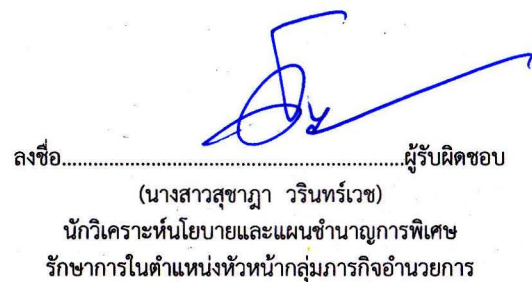 ลงชื่อ..........................................................ผู้รับผิดชอบ
(นางสาวสุชาฎา วรินทร์เวช)
นักวิเคราะห์นโยบายและแผนชำนาญการพิเศษ
รักษาการในตำแหน่งหัวหน้ากลุ่มภารกิจอำนวยการ